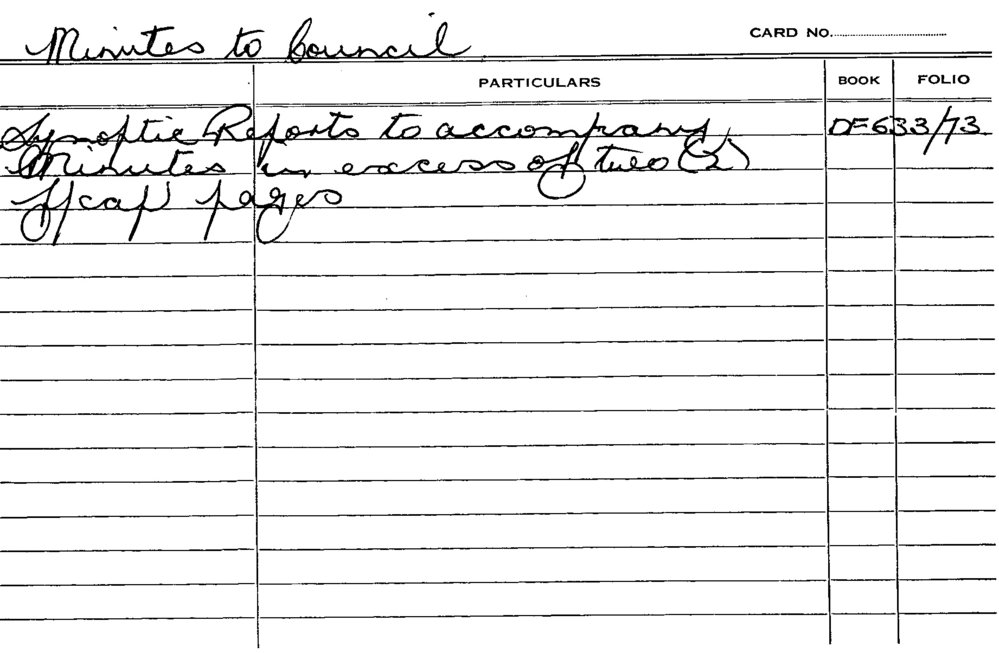 Minutes to Council
CARD NO.
PARTICULARS BOOK FOLIO
Synoptic Reports to accompany DF633/73
Minutes in excess of two (2)
f/cap pages